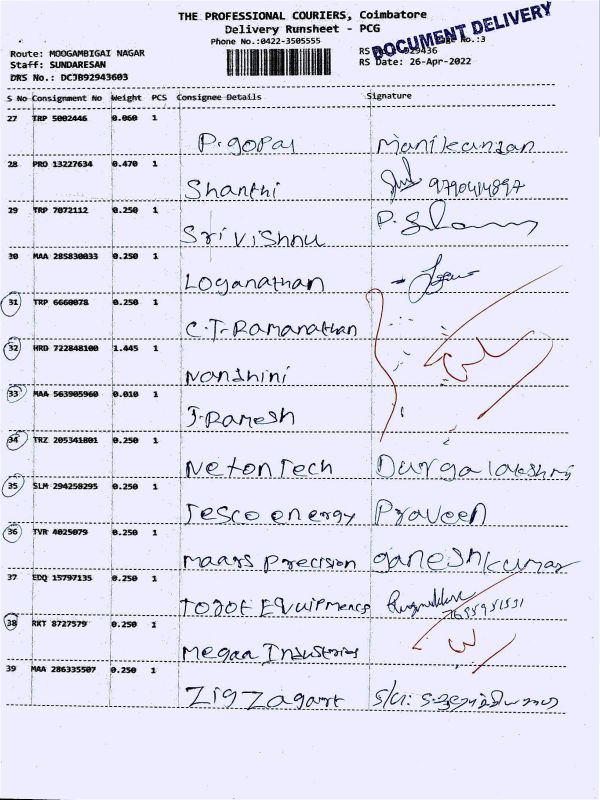 THE PROFESSIONAL COURIERS, Coimbatore
Delivery Runsheet - PCG
Phone No.:0422-3505555
DOCUMENT DELIVERY
No.:3
Route: MOOGAMBIGAI NAGAR
Staff: SUNDARESAN
DRS No.: DCJB92943603
RS 929436
RS Date: 26-Apr-2022
S No Consignment No Weight PCS Consignee Details Signature
27 TRP 5002446 0.060 1
P.gopal Manikandan
28 PRO 13227634 0.470 1
Shanthi 9790414897
29 TRP 7072112 0.250 1
Sri Vishnu
30 MAA 285830033 0.250 1
Loganathan
31 TRP 6660078 0.250 1
C.T-Ramanathan
32 HRD 722848100 1.445 1
Nandhini
33 MAA 563905960 0.010 1
J.Ramesh
34 TRZ 205341801 0.250 1
Neton Tech Durga lakshmi
35 SLM 294258295 0.250 1
Tesco energy Praveen
36 TVR 4025079 0.250 1
Maars Precision ganeshkumar
37 EDQ 15797135 0.250 1
38 RKT 8727579 0.250 1
Megaa Industries
39 MAA 286335507 0.250 1